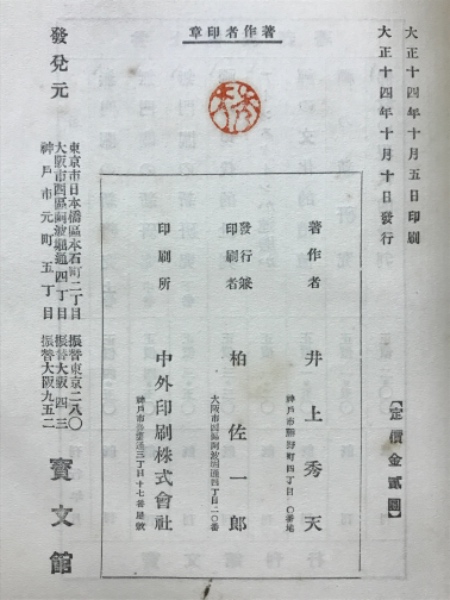 大正十四年十月五日印刷
大正十四年十月十日發行
【定價金貳圓】
著作者印章
著作者 井上秀天
神戶市 町四丁目 〇番地
發行兼印刷者 柏佐一郎
大阪市西區阿波堀通四丁目二〇番
印刷所 中外印刷株式會社
神戶市 通三丁目十七番屋號
發兌元
東京市日本橋區本石町二丁目 振替東京二八〇
大阪市西區阿波堀通四丁目 振替大阪四三
神戶市元町五丁目 振替大阪九五二
寳文館